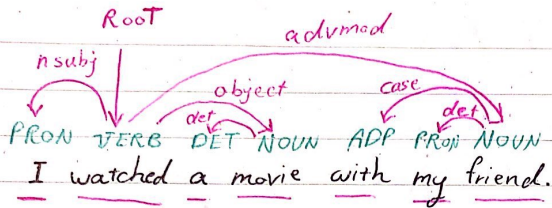 ROOT
advmod
nsubj
object
case
det
det
PRON VERB DET NOUN ADP PRON NOUN
I watched a movie with my friend.